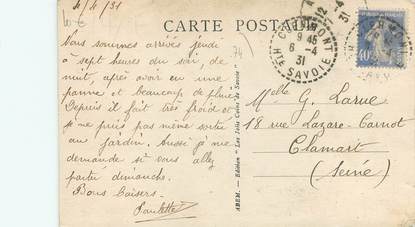 4/4/31
CARTE POSTALE
Nous sommes arrivés jeudi
à sept heures du soir, de
nuit, après avoir eu une
panne et beaucoup de pluie
Depuis il fait très froid et
je ne puis pas même sortir
au jardin. Aussi je me
demande si vous allez
partir dimanche.
Bons baisers.
Paulette
74
ABEM. - Edition "Les Jolis Coins de Savoie"
9 45
6 - 4
31
HTE SAVOIE
Melle G. Larue
18 rue Lazare-Carnot
Clamart
(Seine)